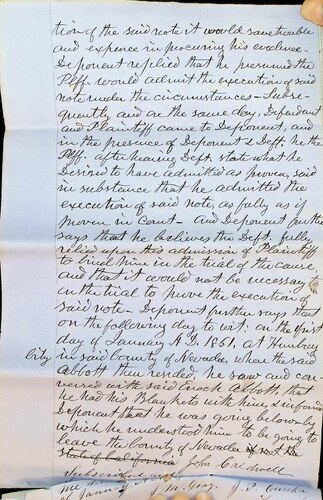 tion of the said note it would save trouble
and expence in procuring his evidence.
Deponent replied that he presumed the
Plff. would admit the execution of said
note under the circumstances - Subse-
quently and on the same day, Defendant
and Plaintiff came to Deponent, and
in the presence of Deponent & Deft. he the
Plff. after hearing Deft. state what he
desired to have admitted as proven, said
in substance that he admitted the
execution of said note, as fully as if
proven in Court - And Deponent further
says that he believes the Deft. fully
relied upon this admission of Plaintiff
to bind him in the trial of the cause
and that it would not be necessary
on the trial to prove the execution of
said note - Deponent further says that
on the following day to wit: on the first
day of January A.D. 1861, at Humbug
City in said County of Nevada, where the said
Abbott then resided, he saw and con-
versed with said Enock Abbott, that
he had his Blankets with him & informed
Deponent that he was going below by
which he understood him to be going to
leave the County of Nevada
State of California John Caldwell
Subscribed
me
of January J. P.